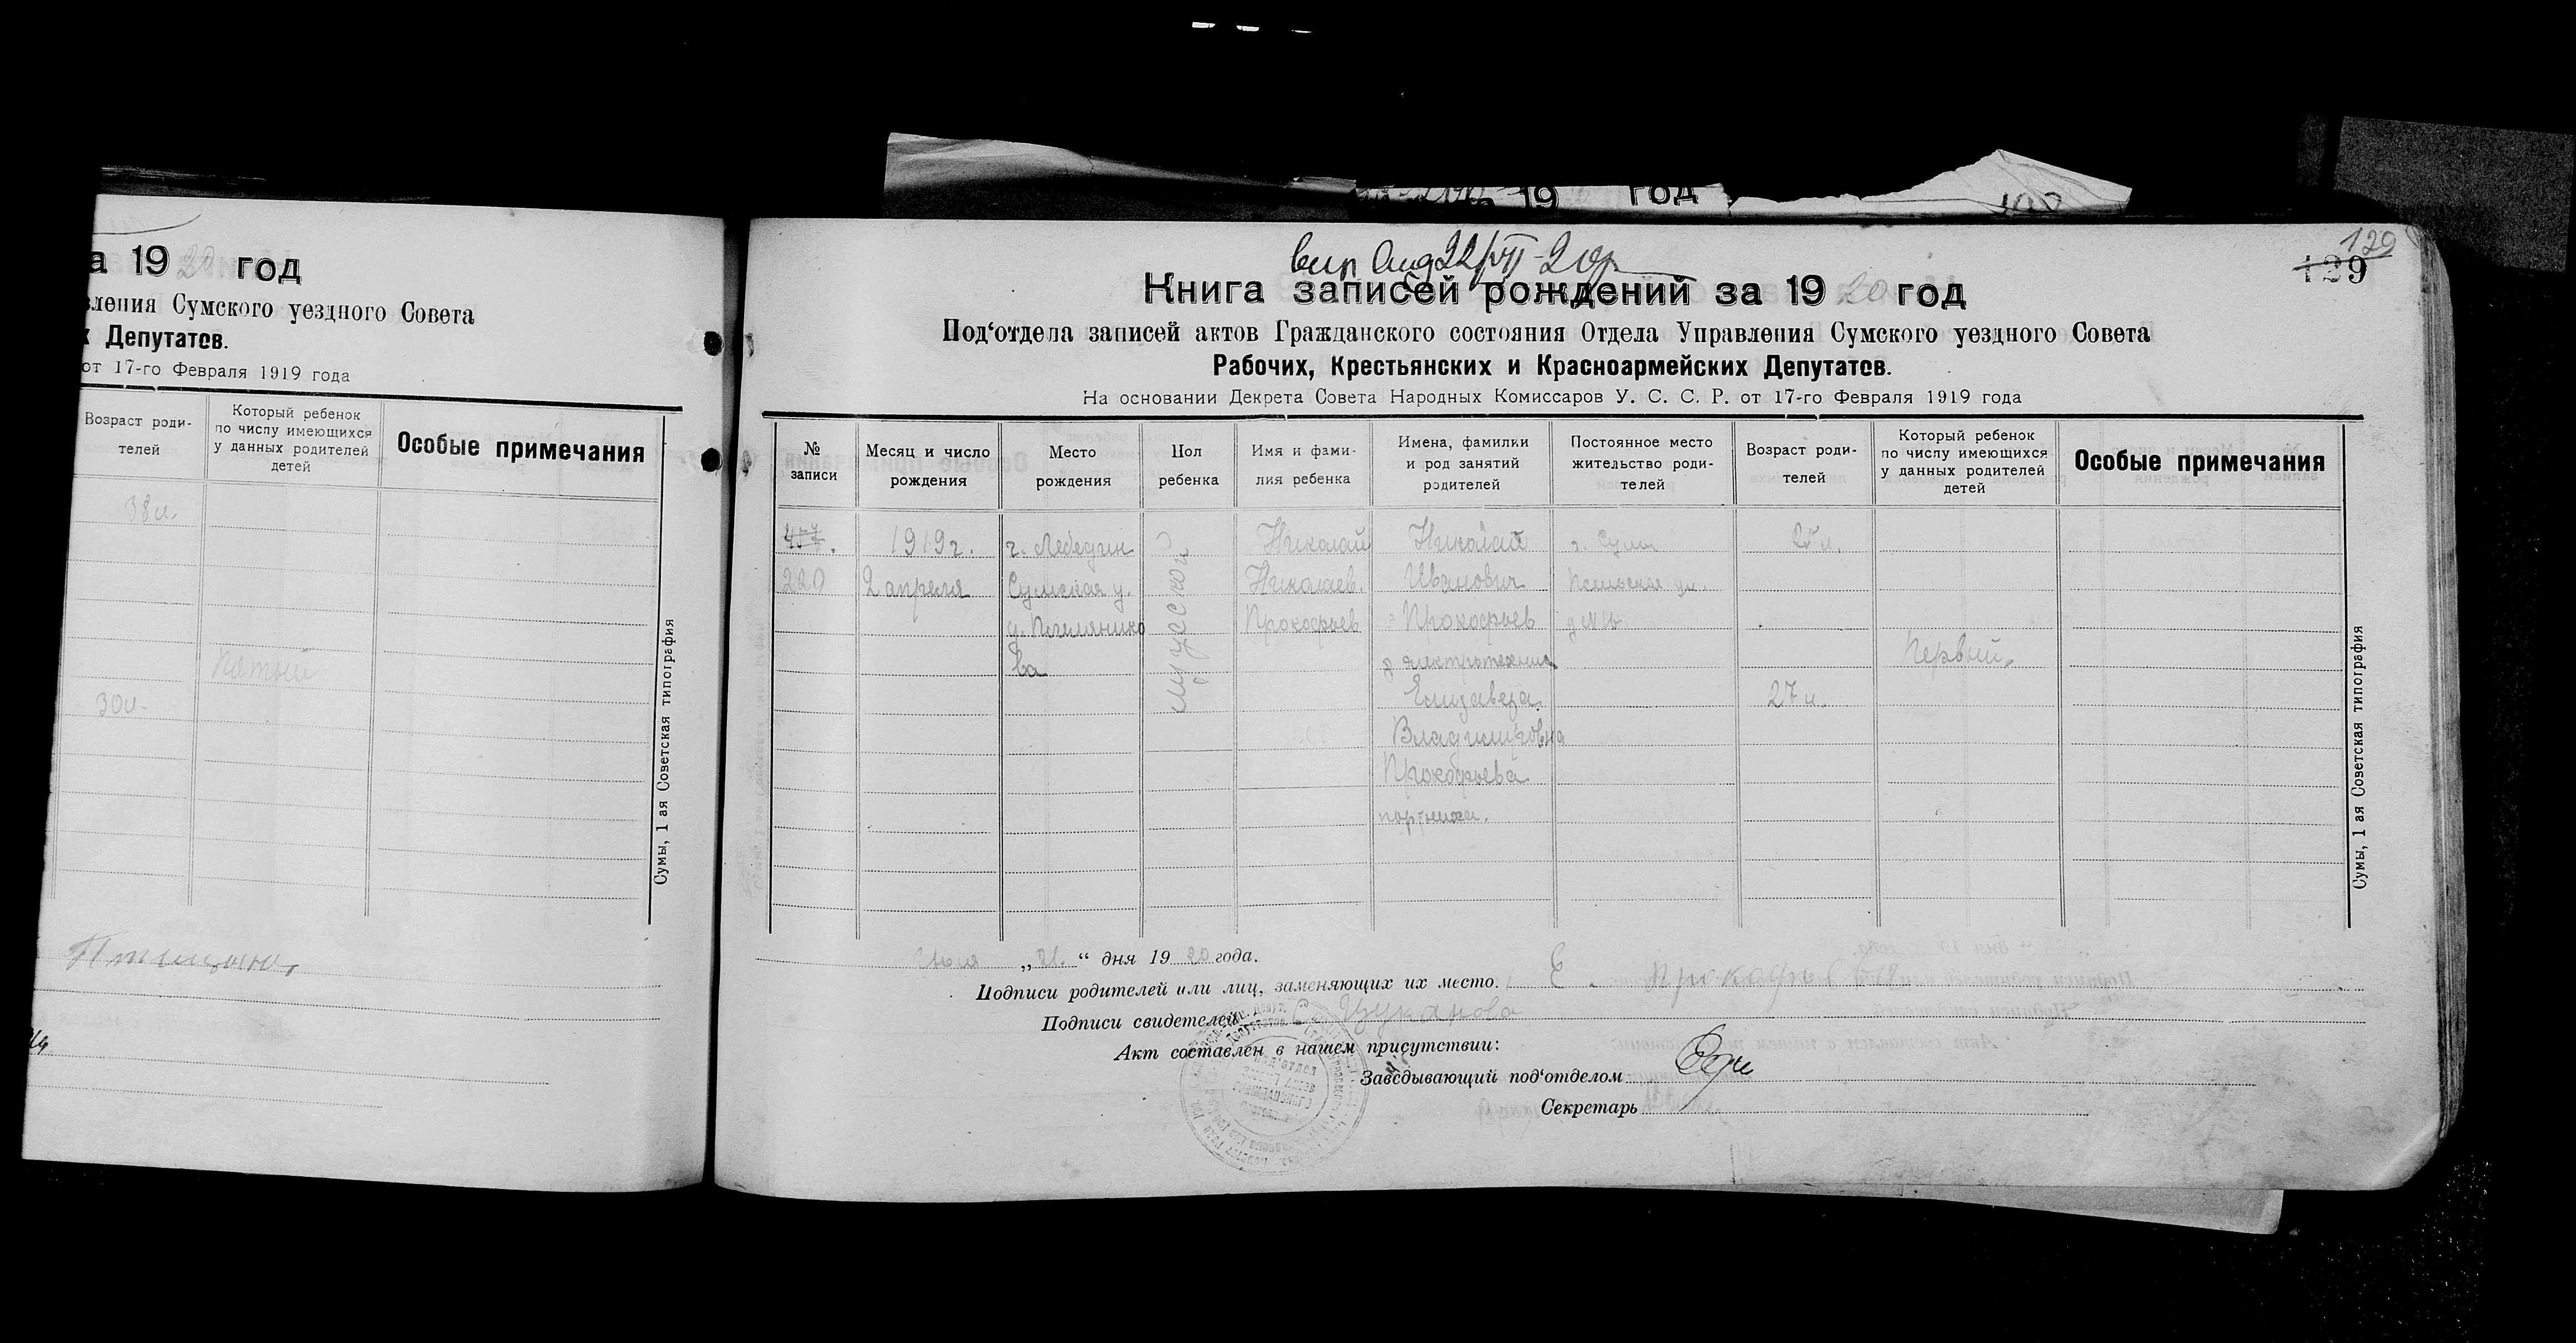 а 19 20 год
вления Сумского уездного Совета
х Депутатов.
от 17-го Февраля 1919 года
Возраст роди-
телей
Который ребенок
по числу имеющихся
у данных родителей
детей
Особые примечания
38 л.
Пятый
30 л.
Сумы, 1 ая Советская типография
19 год
129
129
22/VII-20г
Книга записей рождений за 19 20 год
Под‘отдела записей актов Гражданского состояния Отдела Управления Сумского уездного Совета
Рабочих, Крестьянских и Красноармейских Депутатов.
На основании Декрета Совета Народных Комиссаров У. С. С. Р. от 17-го Февраля 1919 года
№
записи
Месяц и число
рождения
Место
рождения
Пол
ребенка
Имя и фами-
лия ребенка
Имена, фамилии
и род занятий
родителей
Постоянное место
жительство роди-
телей
Возраст роди-
телей
Который ребенок
по числу имеющихся
у данных родителей
детей
Особые примечания
457.
220
1919 г.
2 апреля
г. Лебедин
Сумская у.
ва
мужской
Николай
Николаев.
Прокофьев
Николай
Иванович
Прокофьев
электротехник
Елизавета
Владимировна
Прокофьева
портниха.
г. Сумы
25 л.
27 л.
Первый.
Сумы, 1 ая Советская типография
Июля „21.“ дня 19 20 года.
Подписи родителей или лиц, заменяющих их место. Е. Прокофьева
Подписи свидетелей С Цуканова
Акт составлен в нашем присутствии:
Заведывающий под‘отделом
Секретарь